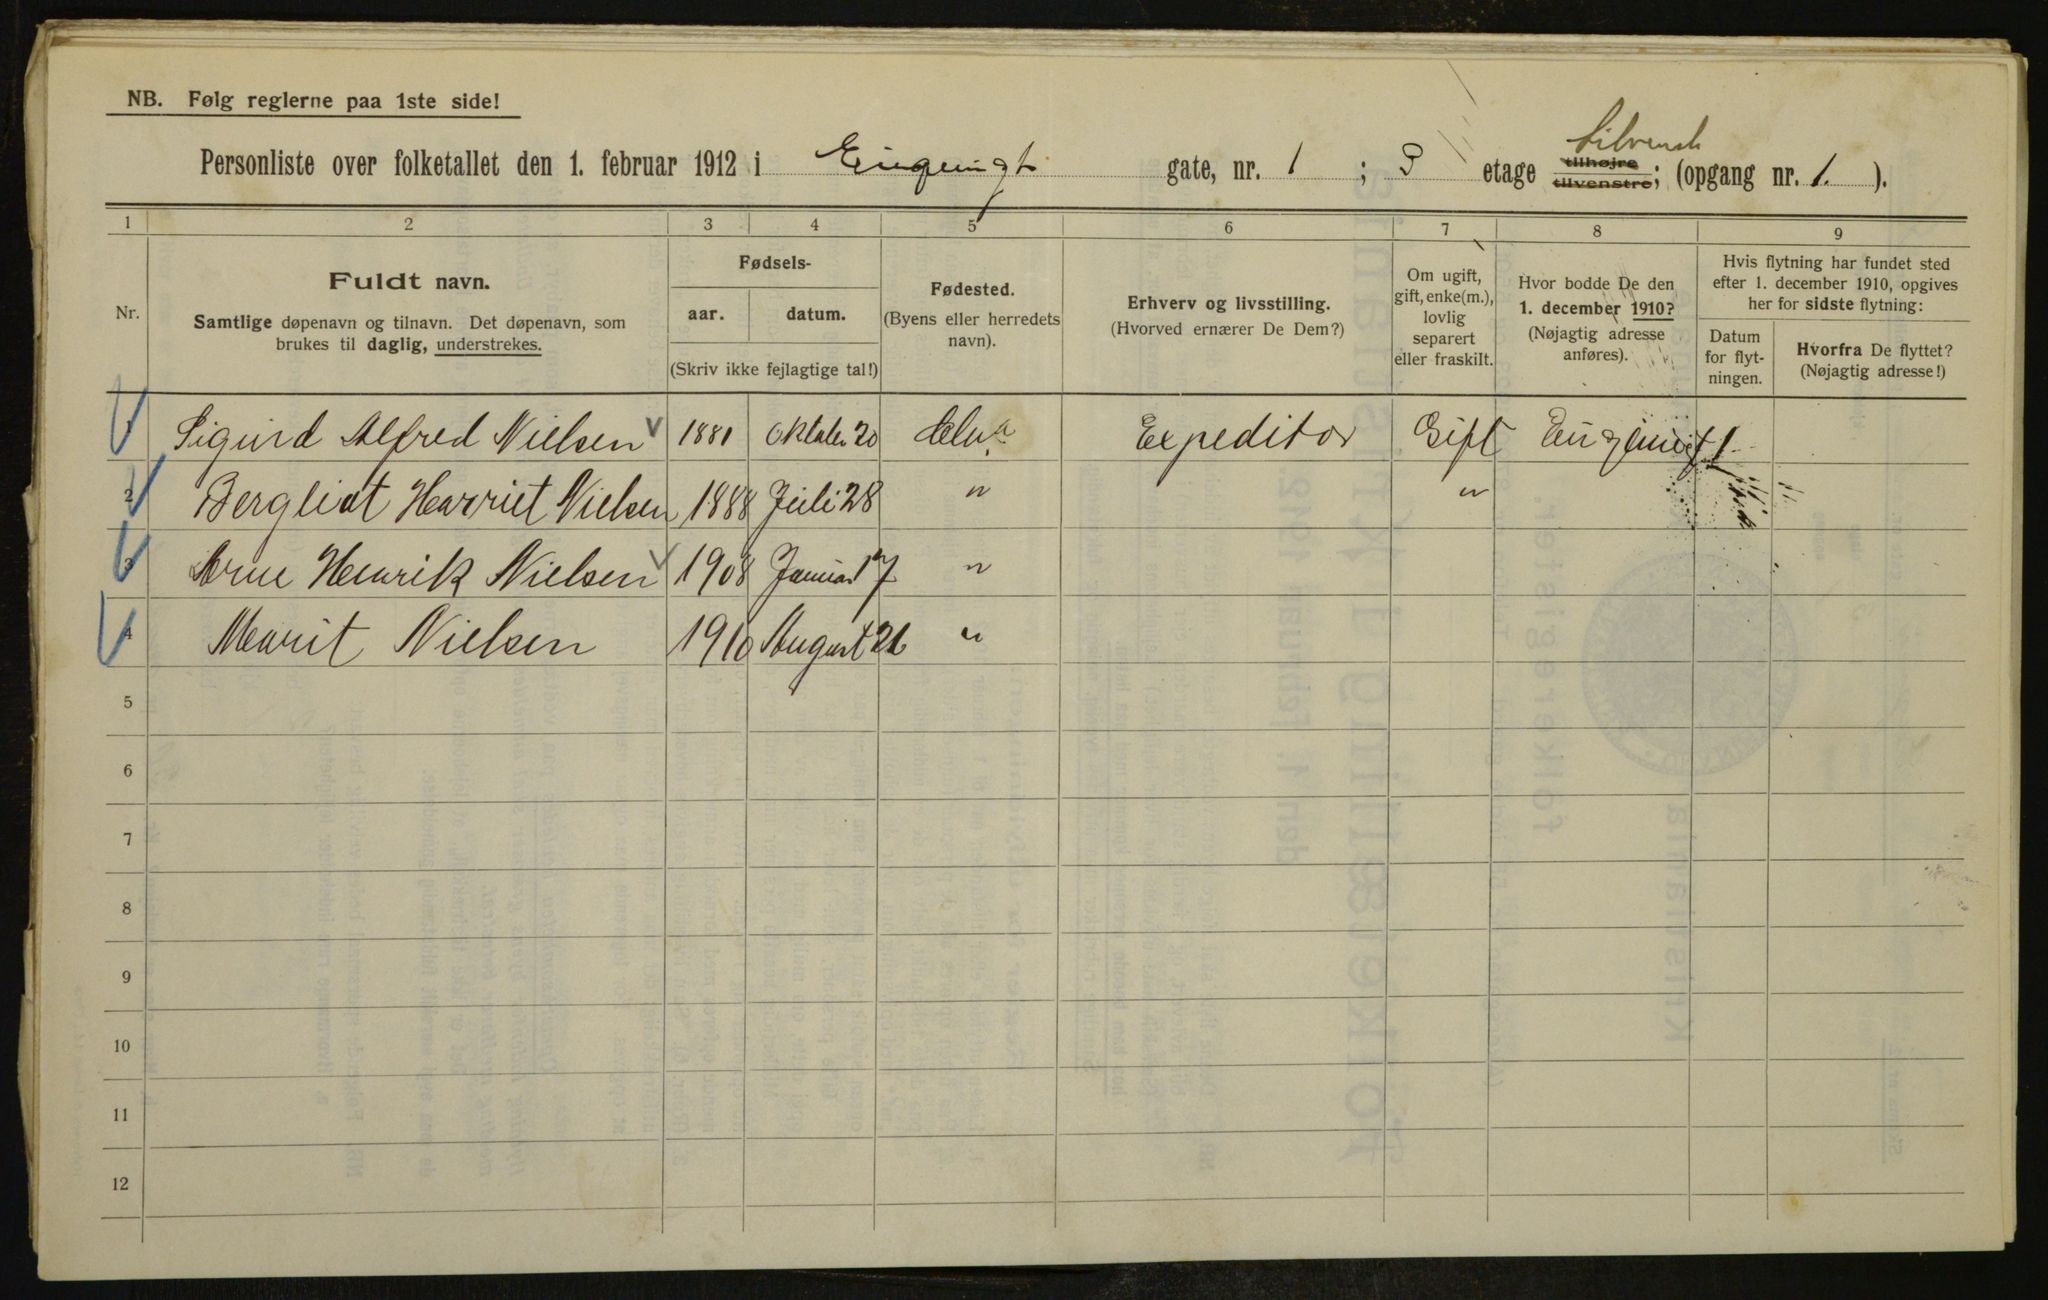 NB. Følg reglerne paa 1ste side!
tilvenst
Personliste over folketallet den 1. februar 1912 i Eugenigt gate, nr. 1 ; 3 etage tilhøjre tilvenstre; (opgang nr. 1. ).
1 2 3 4 5 6 7 8 9
Nr.
Fuldt navn.
Samtlige døpenavn og tilnavn. Det døpenavn, som
brukes til daglig, understrekes.
Fødsels-
aar. datum.
(Skriv ikke fejlagtige tal!)
Fødested.
(Byens eller herredets
navn).
Erhverv og livsstilling.
(Hvorved ernærer De Dem?)
Om ugift,
gift, enke(m.),
lovlig
separert
eller fraskilt.
Hvor bodde De den
1. december 1910?
(Nøjagtig adresse
anføres).
Hvis flytning har fundet sted
efter 1. december 1910, opgives
her for sidste flytning:
Datum
for flyt-
ningen.
Hvorfra De flyttet?
(Nøjagtig adresse!)
1 Sigurd Alfred Nielsen 1881 Oktober 20 Expeditør Gift Eugenigt 1
2 Bergliot Harriet Nielsen 1888 Juli 28 " "
3 Arne Henrik Nielsen 1908 Januar 17 "
4 Marit Nielsen 1910 August 26 "
5
6
7
8
9
10
11
12